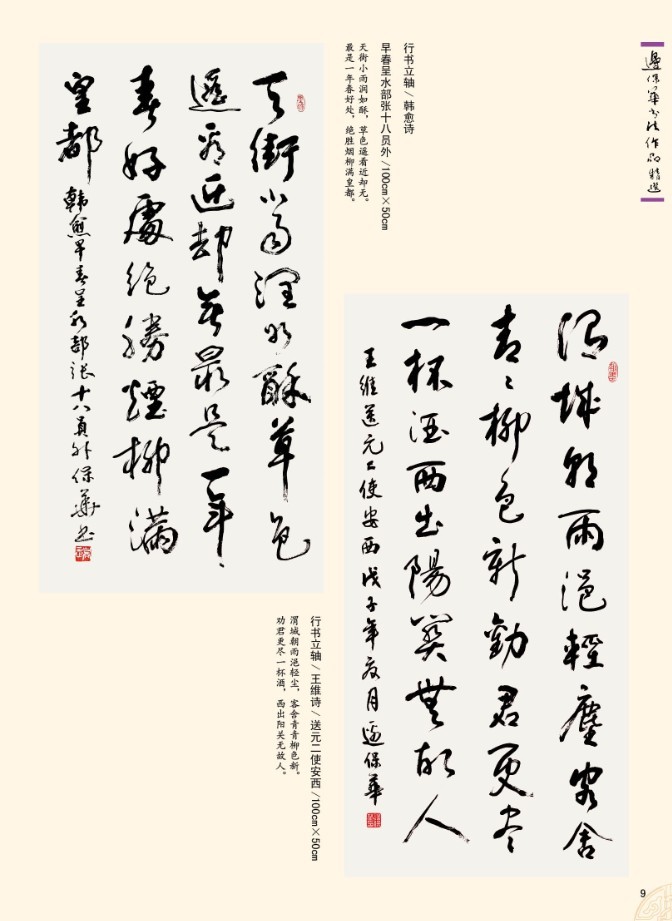 邊保華书法作品精選
行书立轴/韩愈诗
早春呈水部张十八员外/100cm×50cm
天街小雨润如酥，草色遥看近却无。
最是一年春好处，绝胜烟柳满皇都。
天街小雨潤如酥草色
遥看近却無最是一年
春好處绝勝煙柳滿
皇都
韓愈早春呈水部張十八員外保華书
渭城朝雨浥輕塵客舍
青〻柳色新勸君更尽
一杯酒西出陽關無故人
王維送元二使安西戊子年夏月邊保華
行书立轴/王维诗/送元二使安西/100cm×50cm
渭城朝雨浥轻尘，客舍青青柳色新。
劝君更尽一杯酒，西出阳关无故人。
9